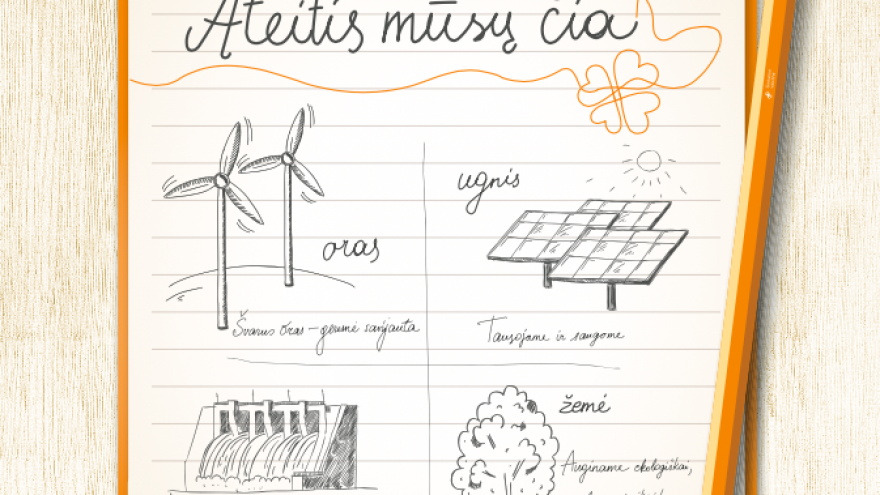 Ateitis mūsų čia
ugnis
oras
Švarus oras – geresnė savijauta
Tausojame ir saugome
žemė
Auginame ekologiškai,